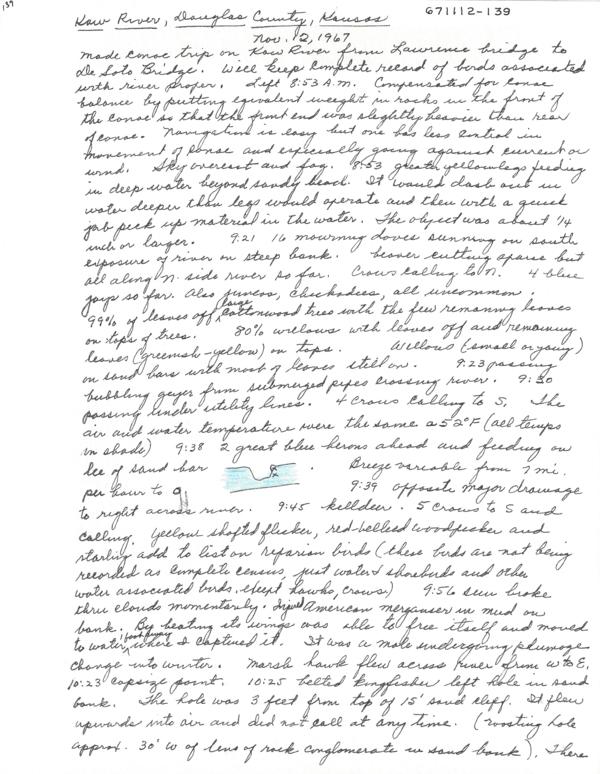 139
Kaw River, Douglas County, Kansas
671112-139
Nov. 12, 1967
made canoe trip on Kaw River from Lawrence bridge to
De Soto Bridge. Will keep complete record of birds associated
with river proper. Left 8:53 A.M. Compensated for canoe
balance by putting equivalent weight in rocks in the front of
the canoe so that the front end was slightly heavier than rear
of canoe. Navigation is easy but one has less control in
movement of canoe and especially going against current or
wind. Sky overcast and fog. 8:53 greater yellowlegs feeding
in deep water beyond sandy beach. It would dash out in
water deeper than legs would operate and then with a quick
jab pick up material in the water. The object was about 1/4
inch or larger. 9:21 16 mourning doves sunning on south
exposure of river on steep bank. beaver cutting sparse but
all along N. side river so far. Crows calling to N. 4 blue
jays so far. Also juncos, chickadees, all uncommon.
99% of leaves off large cottonwood trees with the few remaining leaves
on tops of trees. 80% willows with leaves off and remaining
leaves (greenish-yellow) on tops. Willows (small or young)
on sand bars with most of leaves still on. 9:23 passing
bubbling geyser from submerged pipes crossing river. 9:30
passing under utility lines. 4 crows calling to S. The
air and water temperature were the same a 52°F (all temps
in shade) 9:38 2 great blue herons ahead and feeding on
lee of sand bar . Breeze variable from 7 mi.
per hour to 0 9:39 opposite major drainage
to right across river. 9:45 killdeer. 5 crows to S and
calling. Yellow shafted flicker, red-bellied woodpecker and
starling add to list on riparian birds (these birds are not being
recorded as complete census, just water & shorebirds and other
water associated birds, except hawks, crows.) 9:56 sun broke
thru clouds momentarily. Injured American merganser in mud on
bank. By beating its wings was able to free itself and moved
to water, 1 foot away where I captured it. It was a male undergoing plumage
change into winter. Marsh hawk flew across river from W to E.
10:23 capsize point. 10:25 belted kingfisher left hole in sand
bank. The hole was 3 feet from top of 15' sand cliff. It flew
upwards into air and did not call at any time. (roosting hole
approx. 30' W of lens of rock conglomerate in sand bank). There